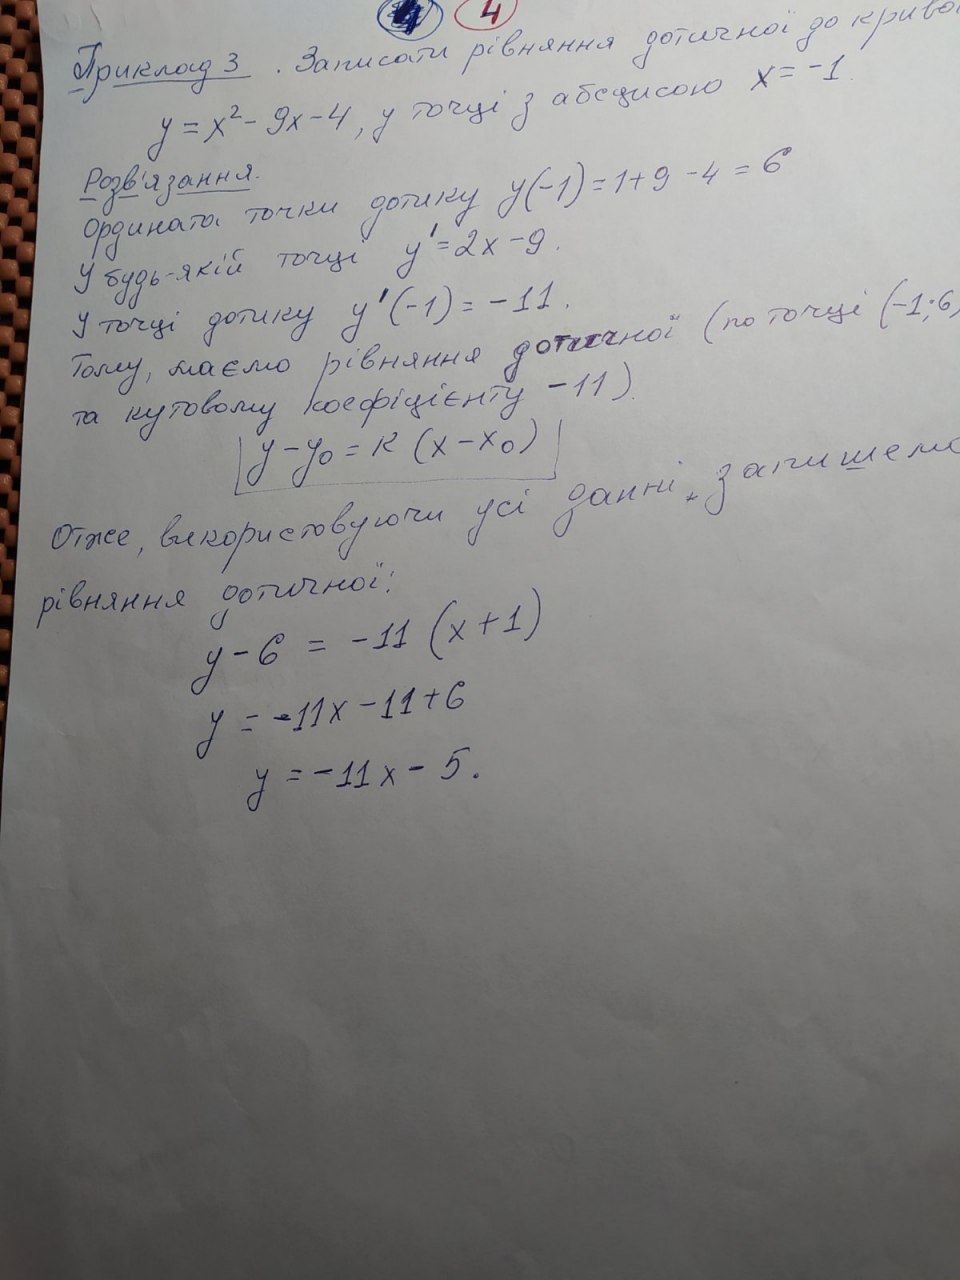 4
Приклад 3. Записати рівняння дотичної до кривої
y = x² - 9x - 4, у точці з абсцисою x = -1.
Розв'язання.
Ордината точки дотику y(-1) = 1+9-4 = 6
У будь-якій точці y' = 2x - 9.
У точці дотику y'(-1) = -11.
Тому, маємо рівняння дотичної (по точці (-1;6)
та кутовому коефіцієнту -11).
y - y₀ = k (x - x₀)
Отже, використовуючи усі данні, запишемо
рівняння дотичної:
y - 6 = -11 (x + 1)
y = -11x - 11 + 6
y = -11x - 5.